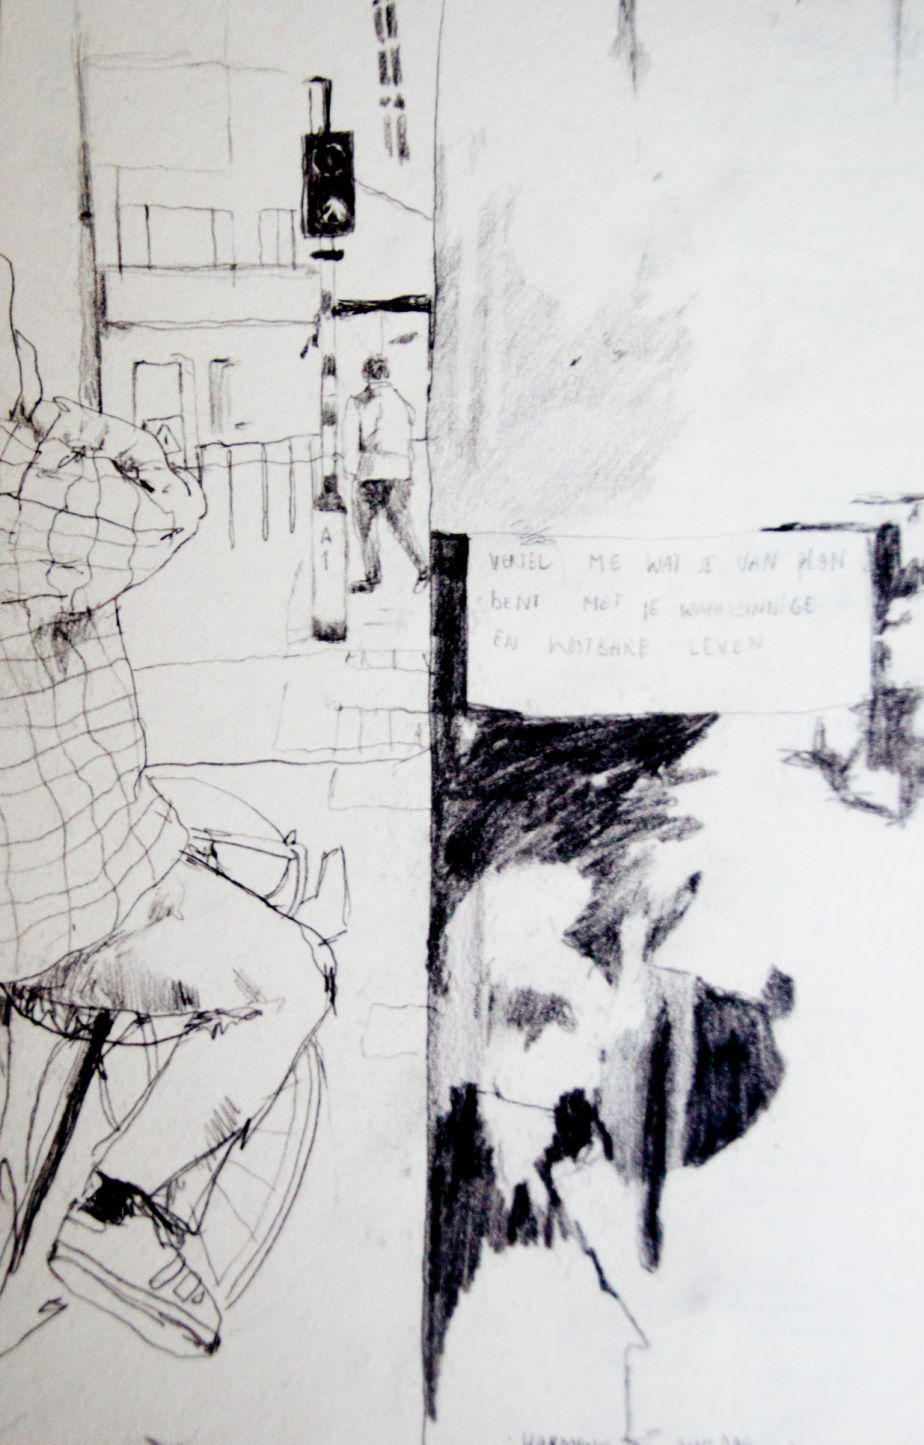 A
1
VERTEL ME WAT JE VAN PLAN
BENT MET JE WAANZINNIGE
EN KOSTBARE LEVEN